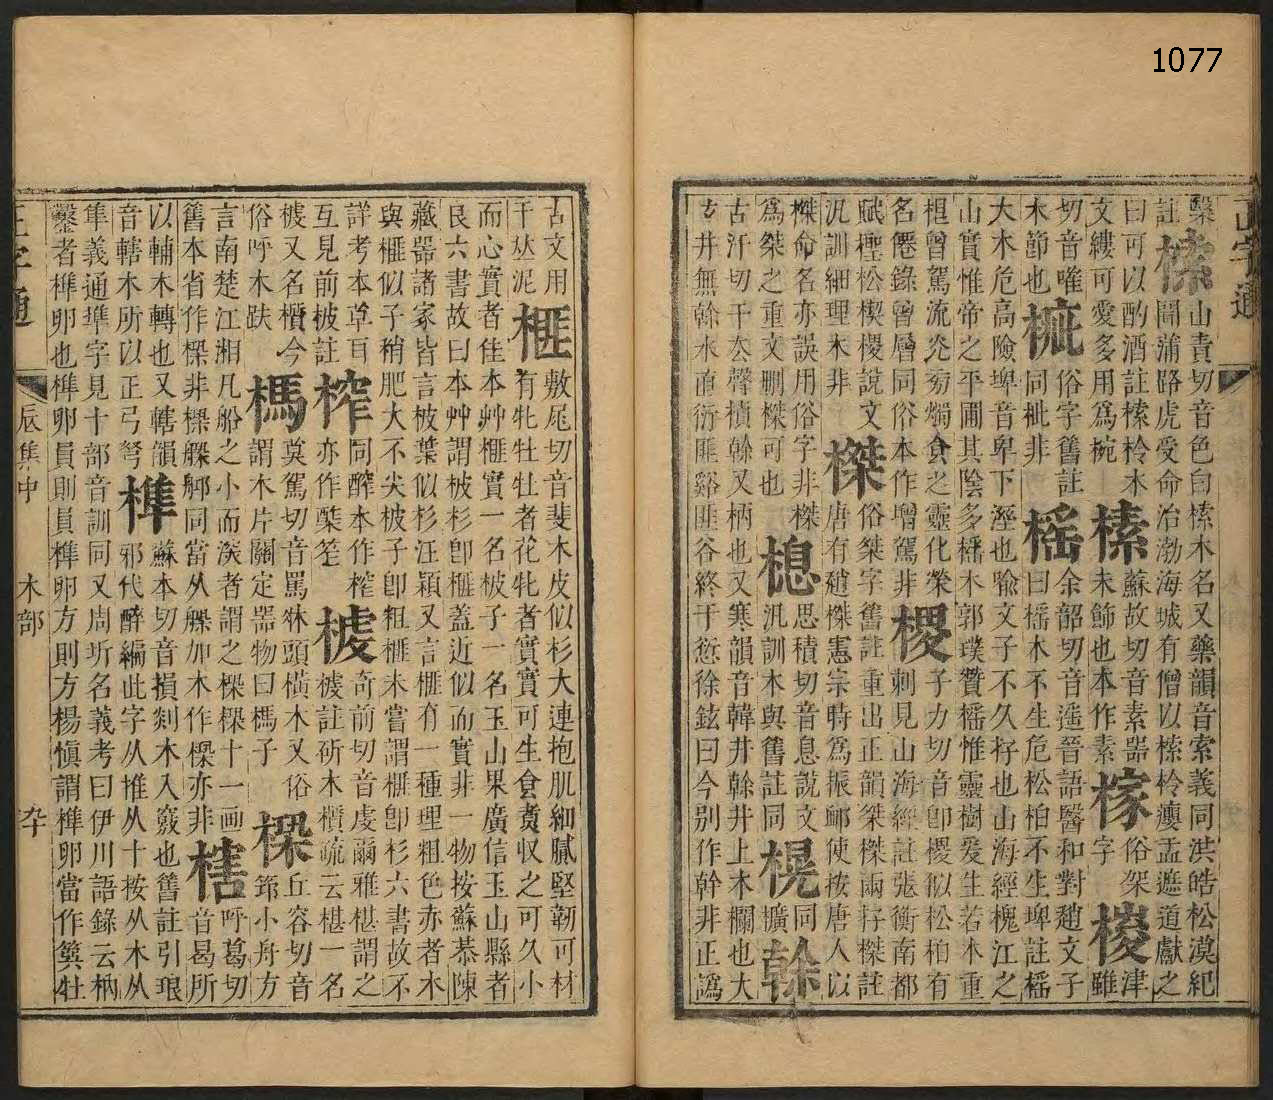 正字通
槩
註
槂
山責切音色自槂木名又藥韻音索義同洪皓松漠紀
聞蒲路虎受命治渤海城有僧以槂柃癭盂遮道獻之
曰可以酌酒註槂柃木
文縷可愛多用爲椀
榡
蘇故切音素器
未飾也本作素
榢
俗架
字
津
雖
切音嗺
木節也
榌
俗字舊註
木同枇非
榣
余韶切音遙晉語醫和對趙文子
曰榣木不生危松柏不生埤註榣
大木危高險埤音卑下溼也喻文子不久存也山海經槐江之
山實惟帝之平圃其陰多榣木郭璞贊榣惟靈樹爰生若木重
根曾駕流光旁燭食之靈化榮
名僊錄曾層同俗本作增駕非
㮨
子力切音卽㮨似松柏有
刺見山海經註張衡南都
賦松楔㮨說文
汎訓細理木非
榤
俗桀字舊註重出正韻桀榤兩存榤註
唐有趙榤憲宗時爲振鄜使按唐人以
榤命名亦誤用俗字非榤
爲桀之重文刪榤可也
㮩
思積切音息說文
汎訓木與舊註同
榥
同
櫎
榦
古汗切干去聲楨榦又柄也又寒韻音韓井榦井上木欄也大
玄井無榦水直衍匪谿匪谷終于愆徐鉉曰今別作幹非正譌
古文用
干𠀤泥
榧
敷尾切音斐木皮似杉大連抱肌細膩堅韌可材
有牝牡牡者花牝者實實可生食収之可久小
而心實者佳本艸榧實一名柀子一名玉山果廣信玉山縣者
良六書故曰本艸謂柀杉卽榧蓋近似而實非一物按蘇恭陳
藏器諸家皆言柀葉似杉汪穎又言榧有一種理粗色赤者木
與榧似子稍肥大不尖柀子卽粗榧未嘗謂榧卽杉六書故不
詳考本草耳
互見前柀註
榨
同醡本作榨
亦作笮
榩
奇前切音虔爾雅椹謂之
榩註斫木櫍疏云椹一名
榩又名櫍今
俗呼木趺
榪
莫駕切音罵牀頭橫木又俗
謂木片關定器物曰榪子
丘容切音
筇小舟方
言南楚江湘凡船之小而深者謂之十一画
舊本省作非同當从加木作亦非
㮫
呼葛切
音曷所
以輔木轉也又轄韻
音轄木所以正弓弩
榫
蘇本切音損剡木入竅也舊註引琅
邪代醉編此字从推从十按从木从
隼義通準字見十部音訓同又周圻名義考曰伊川語錄云枘
鑿者榫卯也榫卯員則員榫卯方則方楊愼謂榫卯當作簨牡
正字通
辰集中
木部
卆
1077